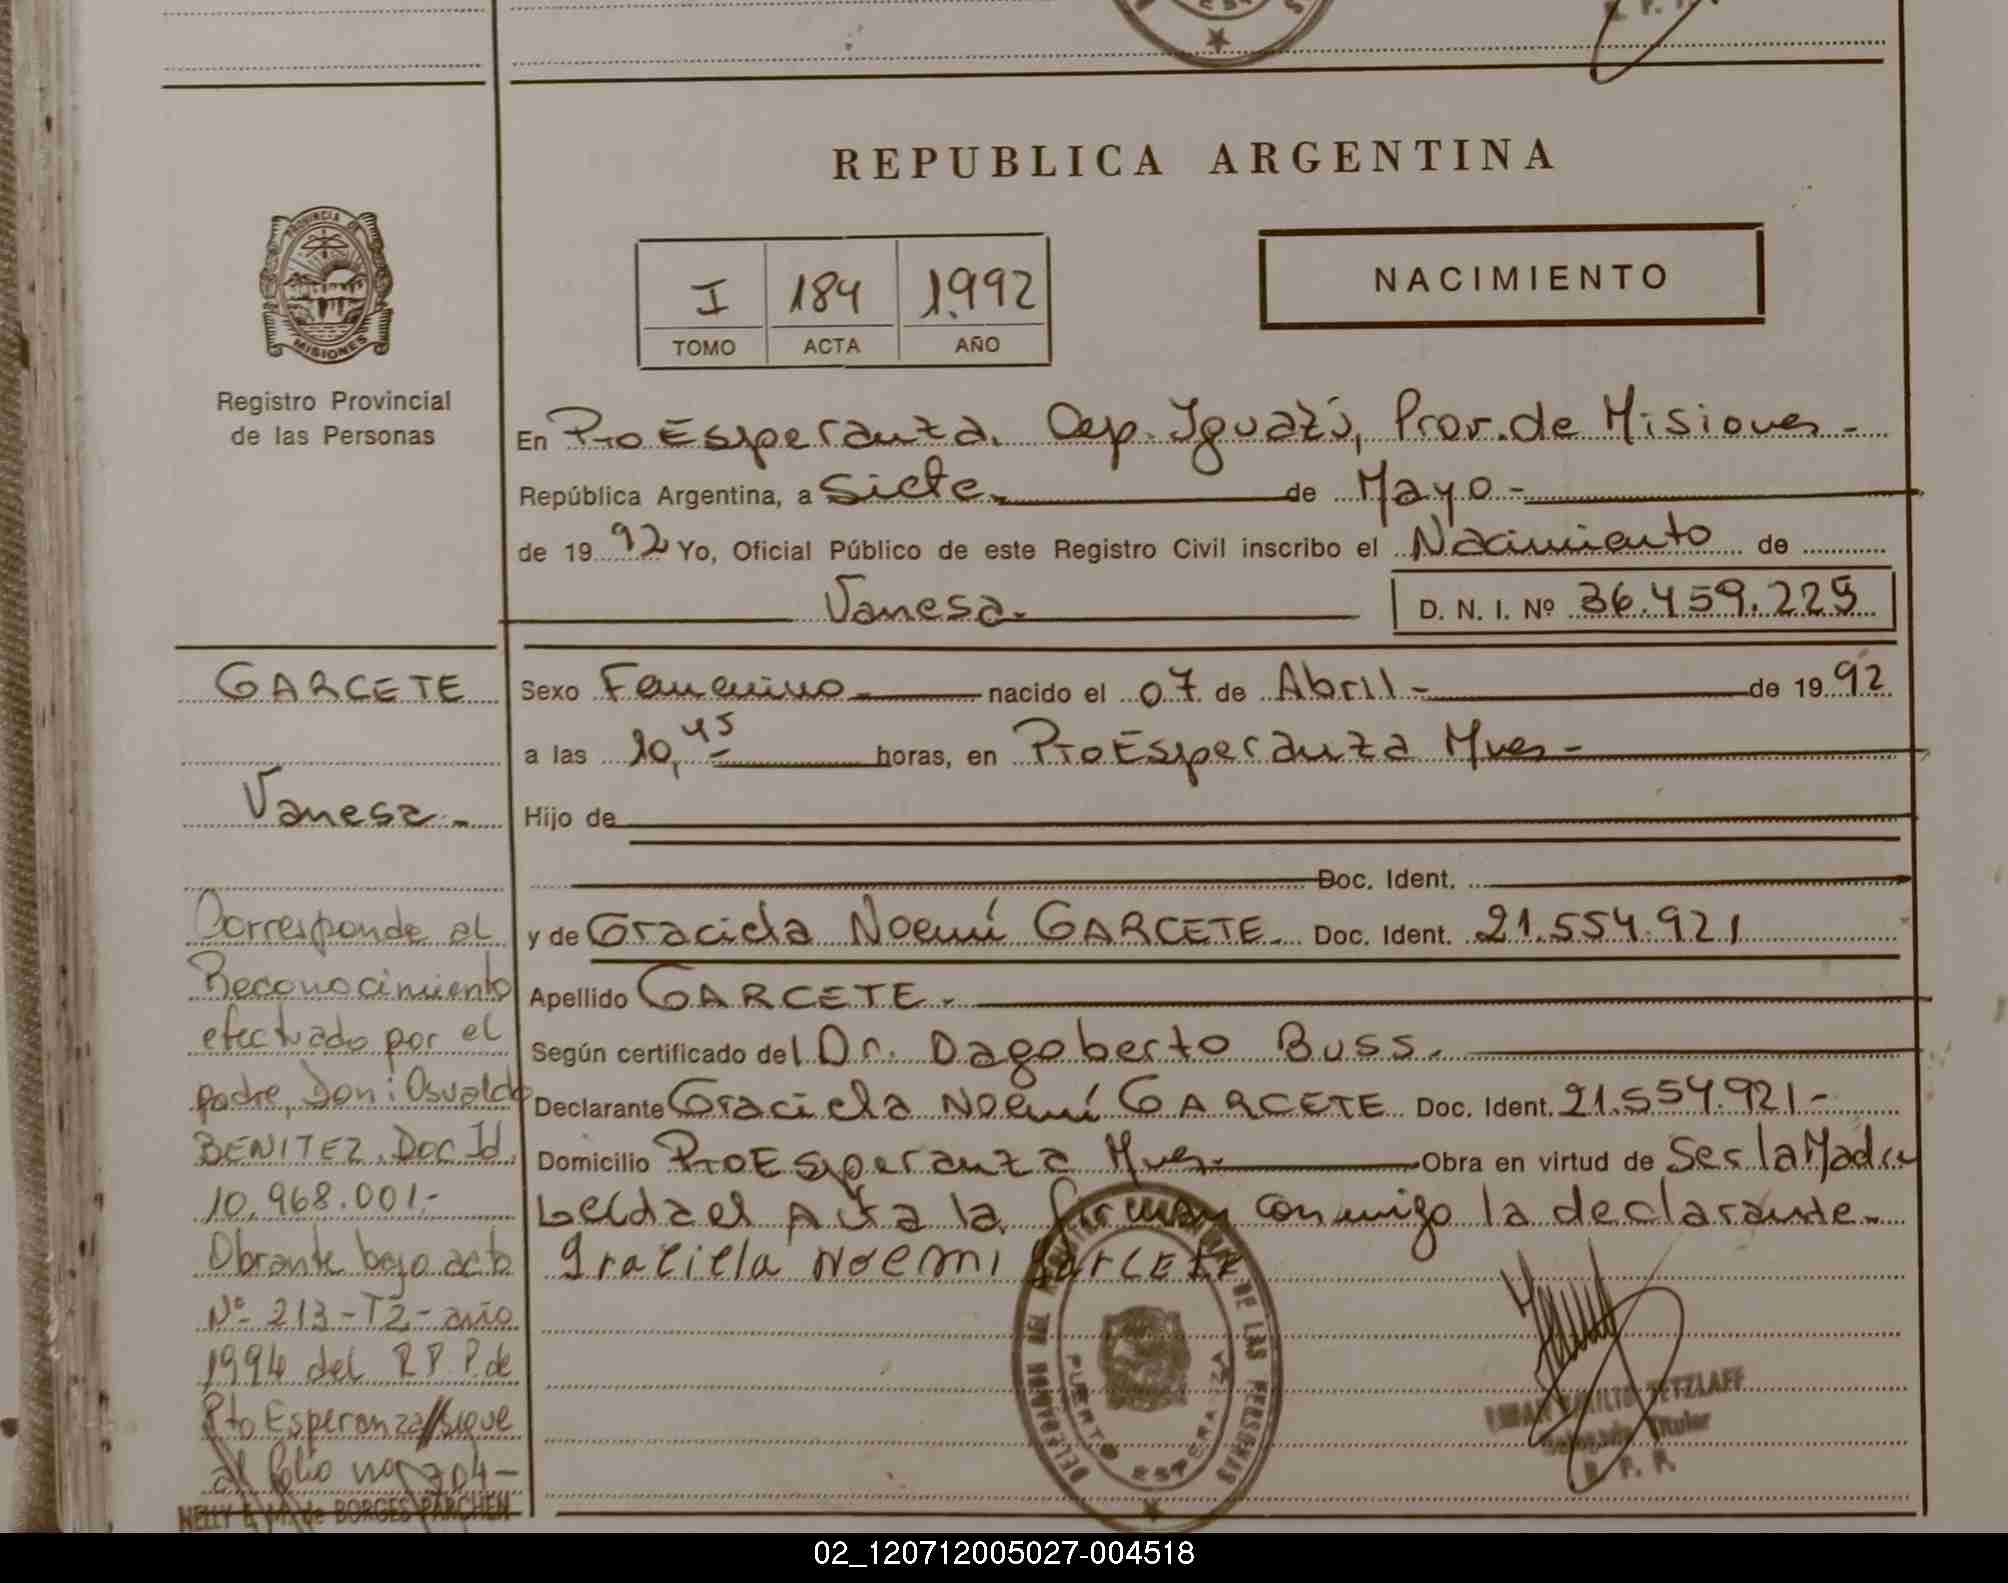 REPUBLICA ARGENTINA
PROVINCIA DE
MISIONES
Registro Provincial
de las Personas
I 184 1.992
TOMO ACTA AÑO
NACIMIENTO
En Pto Esperanza. Dep. Iguazú, Prov. de Misiones -
República Argentina, a Siete. de Mayo -
de 19 92 Yo, Oficial Público de este Registro Civil inscribo el Nacimiento de
Vanesa.
D. N. I. Nº 36.459.225
GARCETE
Vanesa -
Sexo Femenino - nacido el 07 de Abril - de 19 92
a las 10,45 - horas, en Pto Esperanza Mnes -
Hijo de
Doc. Ident.
y de Graciela Noemí GARCETE - Doc. Ident. 21.554.921
Apellido GARCETE -
Según certificado del Dr. Dagoberto Buss -
Declarante Graciela Noemí GARCETE Doc. Ident. 21.554.921 -
Domicilio Pto Esperanza Mnes - Obra en virtud de Ser la Madre
Leída el Acta la firman conmigo la declarante -
Graciela Noemi GARCETE
Corresponde al
Reconocimiento
efectuado por el
padre, Don: Osvaldo
BENITEZ. Doc Id.
10.968.001.-
Obrante bajo acta
Nº 213 - T2 - año
1994 del R P P. de
Pto Esperanza // sigue
al folio nº 204 -
NELLY de BORGES PARCHEN
DELEGACION DEL REGISTRO PROVINCIAL DE LAS PERSONAS
PUERTO ESPERANZA
EMILIO TETZLAFF
Delegado Titular
R. P. P.
02_120712005027-004518